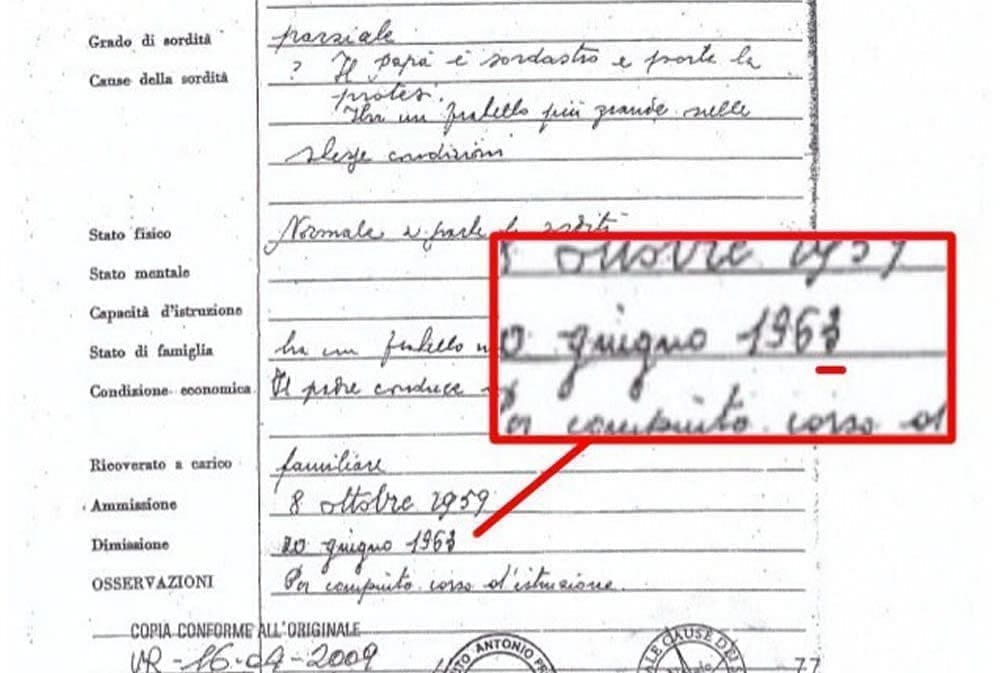 Grado di sordità parziale
Cause della sordità ? Il papà è sordastro e porta la
protesi.
Ha un fratello più grande nelle
stesse condizioni
Stato fisico Normale a parte la sordità
Stato mentale
Capacità d'istruzione
Stato di famiglia ha un fratello
Condizione economica Il padre conduce
8 ottobre 1959
20 giugno 1963
Per compiuto corso d
Ricoverato a carico familiare
Ammissione 8 ottobre 1959
Dimissione 20 giugno 1963
OSSERVAZIONI Per compiuto corso d'istruzione.
COPIA CONFORME ALL'ORIGINALE
VR - 16-04-2009
ANTONIO PR
ALE CAUSE DEI S
77